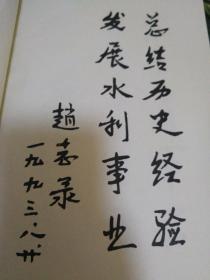 总结历史经验
发展水利事业
趙志录
一九九三.八.廿